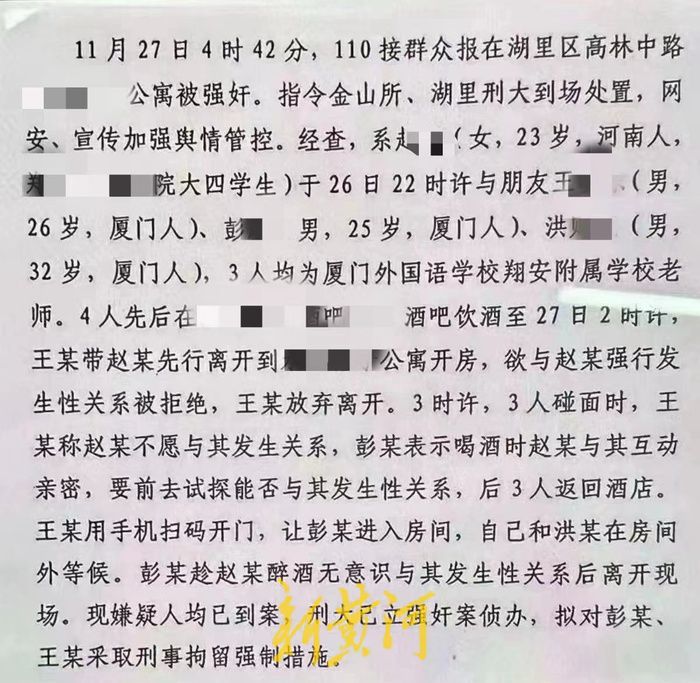 11月27日4时42分，110接群众报在湖里区高林中路
公寓被强奸。指令金山所、湖里刑大到场处置，网
安、宣传加强舆情管控。经查，系赵（女，23岁，河南人，
院大四学生)于26日22时许与朋友王（男，
26岁，厦门人)、彭 男，25岁，厦门人)、洪（男，
32岁，厦门人)，3人均为厦门外国语学校翔安附属学校老
师。4人先后在酒吧 酒吧饮酒至27日2时许，
王某带赵某先行离开到 公寓开房，欲与赵某强行发
生性关系被拒绝，王某放弃离开。3时许，3人碰面时，王
某称赵某不愿与其发生关系，彭某表示喝酒时赵某与其互动
亲密，要前去试探能否与其发生性关系，后3人返回酒店。
王某用手机扫码开门，让彭某进入房间，自己和洪某在房间
外等候。彭某趁赵某醉酒无意识与其发生性关系后离开现
场。现嫌疑人均已到案，刑大已立强奸案侦办，拟对彭某、
王某采取刑事拘留强制措施。
新黄河